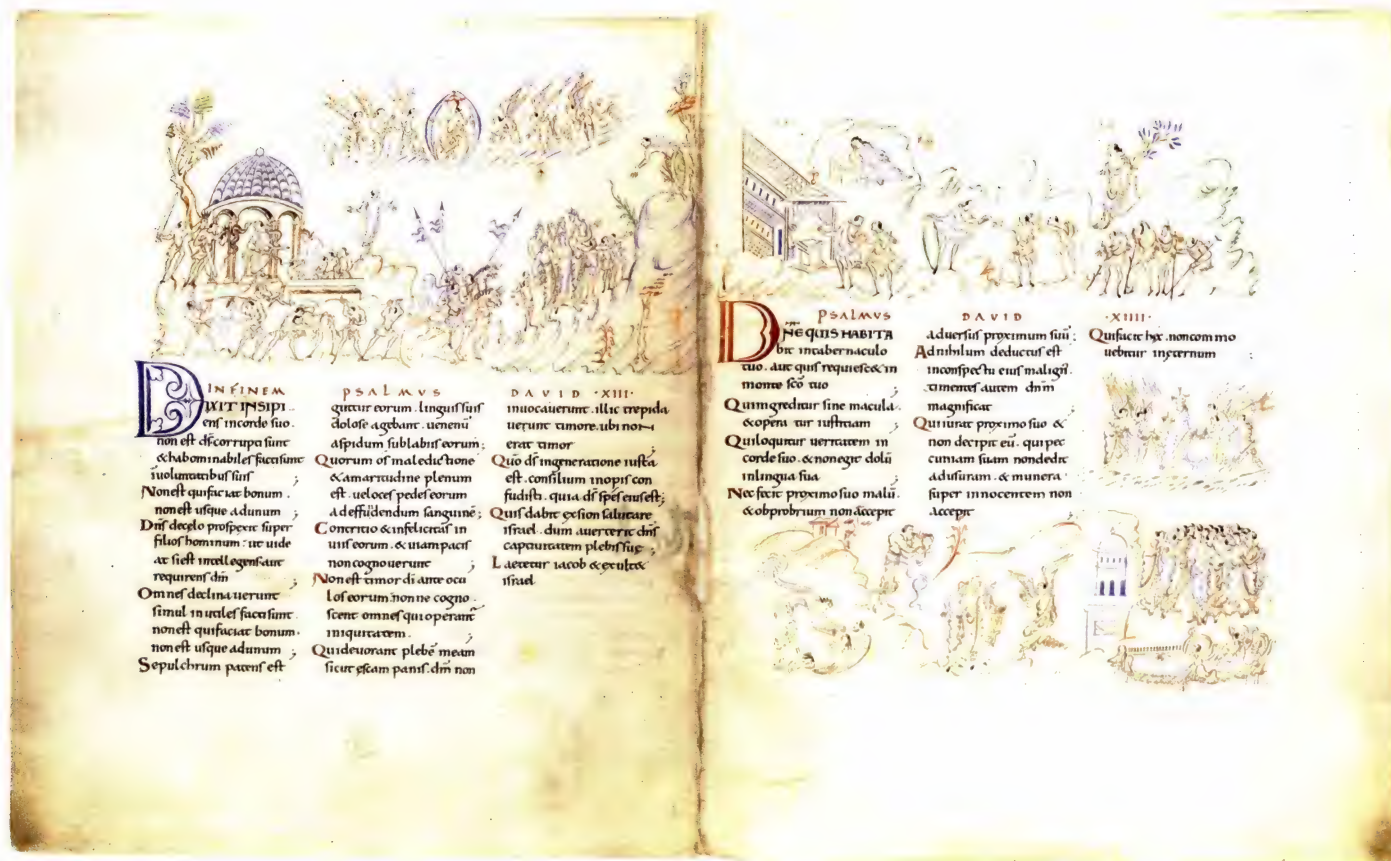 IN FINEM PSALMVS DAVID ·XIII·
DIXIT INSIPI
ens incorde suo.
non est dſ corrupti sunt
& habominabiles facti sunt
in uoluntatibus suis ;
Non est qui faciat bonum .
non est usque ad unum ;
Dnſ de celo prospexit super
filios hominum · ut uide
at si est intellegens aut
requirens dm̄ ;
Omnes declinauerunt
simul inutiles facti sunt .
non est qui faciat bonum .
non est usque ad unum ;
Sepulchrum patens est
guttur eorum . linguis suis
dolose agebant . uenenū
aspidum sub labiis eorum ;
Quorum os maledictione
& amaritudine plenum
est . ueloces pedes eorum
ad effundendum sanguinē ;
Contritio & infelicitas in
uiis eorum . & uiam pacis
non cognouerunt ;
Non est timor di ante ocu
los eorum nonne cogno
scent omnes qui operant̄
iniquitatem . ;
Qui deuorant plebē meam
sicut escam panis . dm̄ non
inuocauerunt . illic trepida
uerunt timore . ubi non
erat timor ;
Quō dſ in generatione iusta
est . consilium inopis con
fudisti . quia dſ spes eius est ;
Quis dabit ex sion salutare
israel . dum auerterit dnſ
captiuitatem plebis suę ;
Laetetur iacob & exultet
israel
PSALMVS DAVID ·XIIII·
DNE QUIS HABITA
bit in tabernaculo
tuo . aut quis requiesc& in
monte scō tuo ;
Qui ingreditur sine macula .
& operatur iustitiam ;
Qui loquitur ueritatem in
corde suo . & non egit dolū
in lingua sua ;
Nec fecit proximo suo malū .
& obprobrium non accepit
aduersus proximum suū ;
Ad nihilum deductus est
in conspectu eius malign̄ .
timentes autem dnm̄
magnificat ;
Qui iurat proximo suo &
non decipit eū . qui pec
cuniam suam non dedit
ad usuram . & munera
super innocentem non
accepit ;
Qui facit hęc . non commo
uebitur in ęternum ;